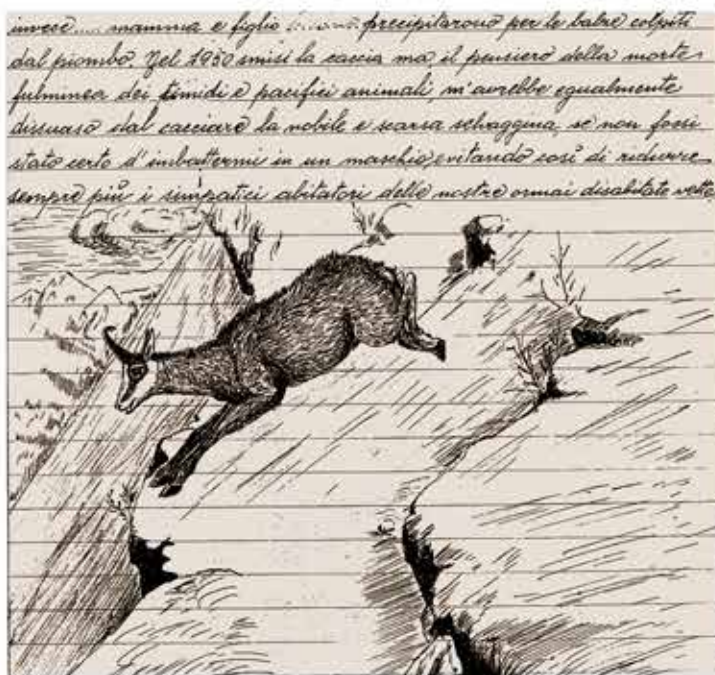 invece .... mamma e figlio precipitarono per le balze colpiti
dal piombo. Nel 1950 smisi la caccia ma, il pensiero della morte
fulminea dei timidi e pacifici animali, m'avrebbe egualmente
dissuaso dal cacciare la nobile e scarsa selvaggina, se non fossi
stato certo d'imbattermi in un maschio, evitando così di ridurre
sempre più i simpatici abitatori delle nostre ormai disabitate vette